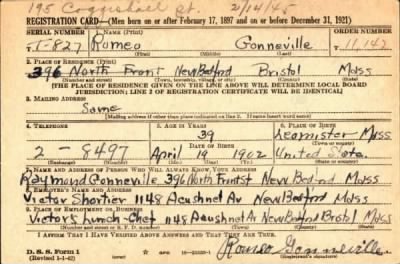 195 Coggeshall St. 2/14/45
REGISTRATION CARD—(Men born on or after February 17, 1897 and on or before December 31, 1921)
SERIAL NUMBER 1. NAME (Print) ORDER NUMBER
T-827 Romeo Gonneville 11,142
(First) (Middle) (Last)
2. PLACE OF RESIDENCE (Print)
396 North Front New Bedford Bristol Mass
(Number and street) (Town, township, village, or city) (County) (State)
[THE PLACE OF RESIDENCE GIVEN ON THE LINE ABOVE WILL DETERMINE LOCAL BOARD
JURISDICTION; LINE 2 OF REGISTRATION CERTIFICATE WILL BE IDENTICAL]
3. MAILING ADDRESS
Same
(Mailing address if other than place indicated on line 2. If same insert word same)
4. TELEPHONE 5. AGE IN YEARS 6. PLACE OF BIRTH
39 Leominster Mass
DATE OF BIRTH (Town or county)
2-8497 April 19 1902 United State.
(Exchange) (Number) (Mo.) (Day) (Yr.) (State or country)
7. NAME AND ADDRESS OF PERSON WHO WILL ALWAYS KNOW YOUR ADDRESS
Raymond Gonneville 396 North Front St New Bedford Mass
8. EMPLOYER'S NAME AND ADDRESS
Victor Shortier 1148 Acushnet Av New Bedford Mass
9. PLACE OF EMPLOYMENT OR BUSINESS
Victor's Lunch-Chef 1148 Acushnet Av New Bedford Bristol Mass
(Number and street or R. F. D. number) (Town) (County) (State)
I AFFIRM THAT I HAVE VERIFIED ABOVE ANSWERS AND THAT THEY ARE TRUE.
D. S. S. Form 1
(Revised 1-1-42) (over) Romeo Gonneville